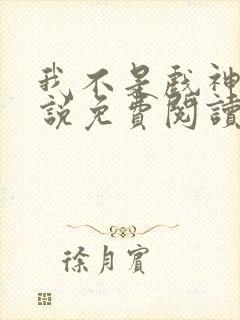 我不是戲神
說免費閱讀
徐月賓